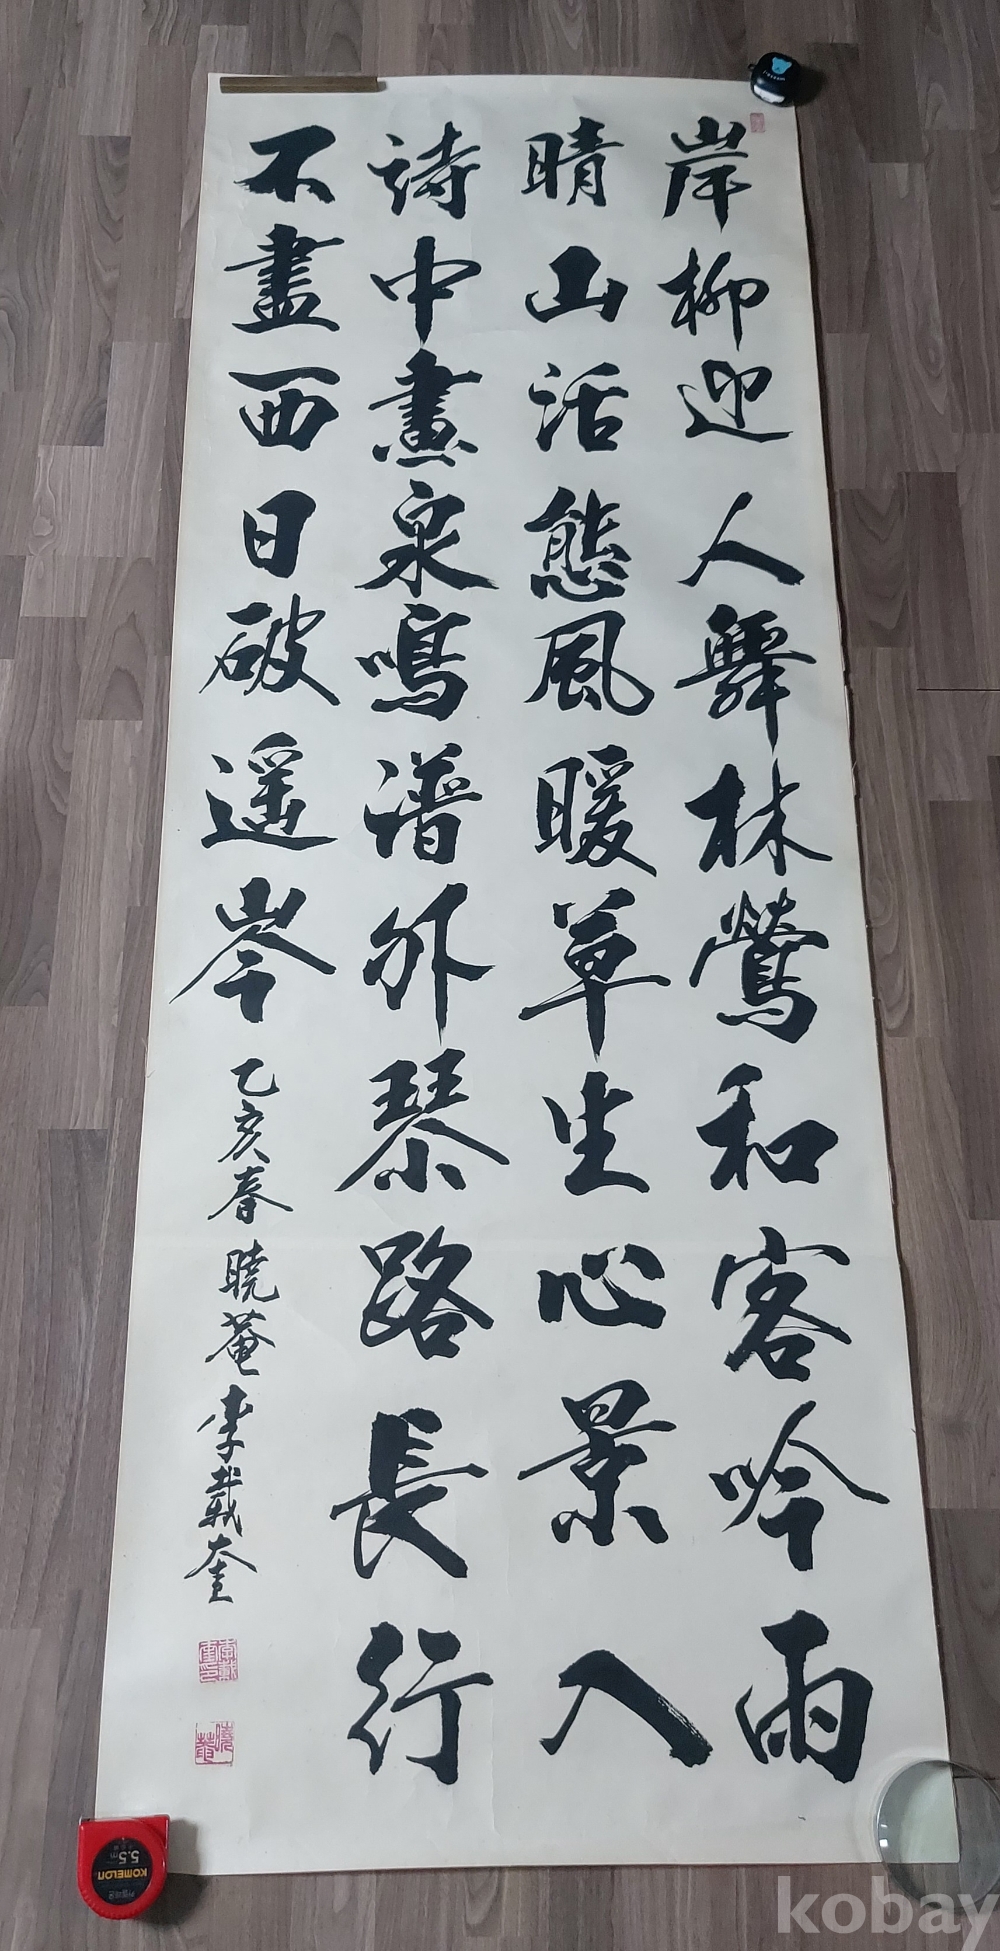 岸柳迎人舞林鶯和客吟雨
晴山活態風暖草生心景入
詩中畫泉鳴譜外琴路長行
不盡西日破遥岑
乙亥春曉菴李載奎
KOMELON
5.5m
kobay